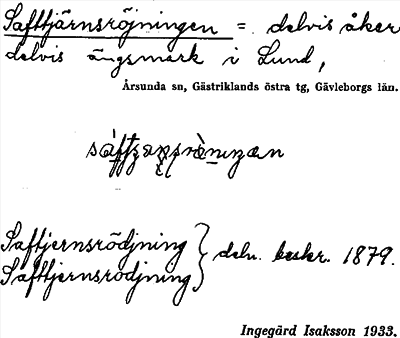 Safttjärnsröjningen = delvis åker
delvis ängsmark i Lund,
Årsunda sn, Gästriklands östra tg, Gävleborgs län.
Saftjernsrödjning
Saftjernsrodjning
deln. beskr. 1879.
Ingegärd Isaksson 1933.